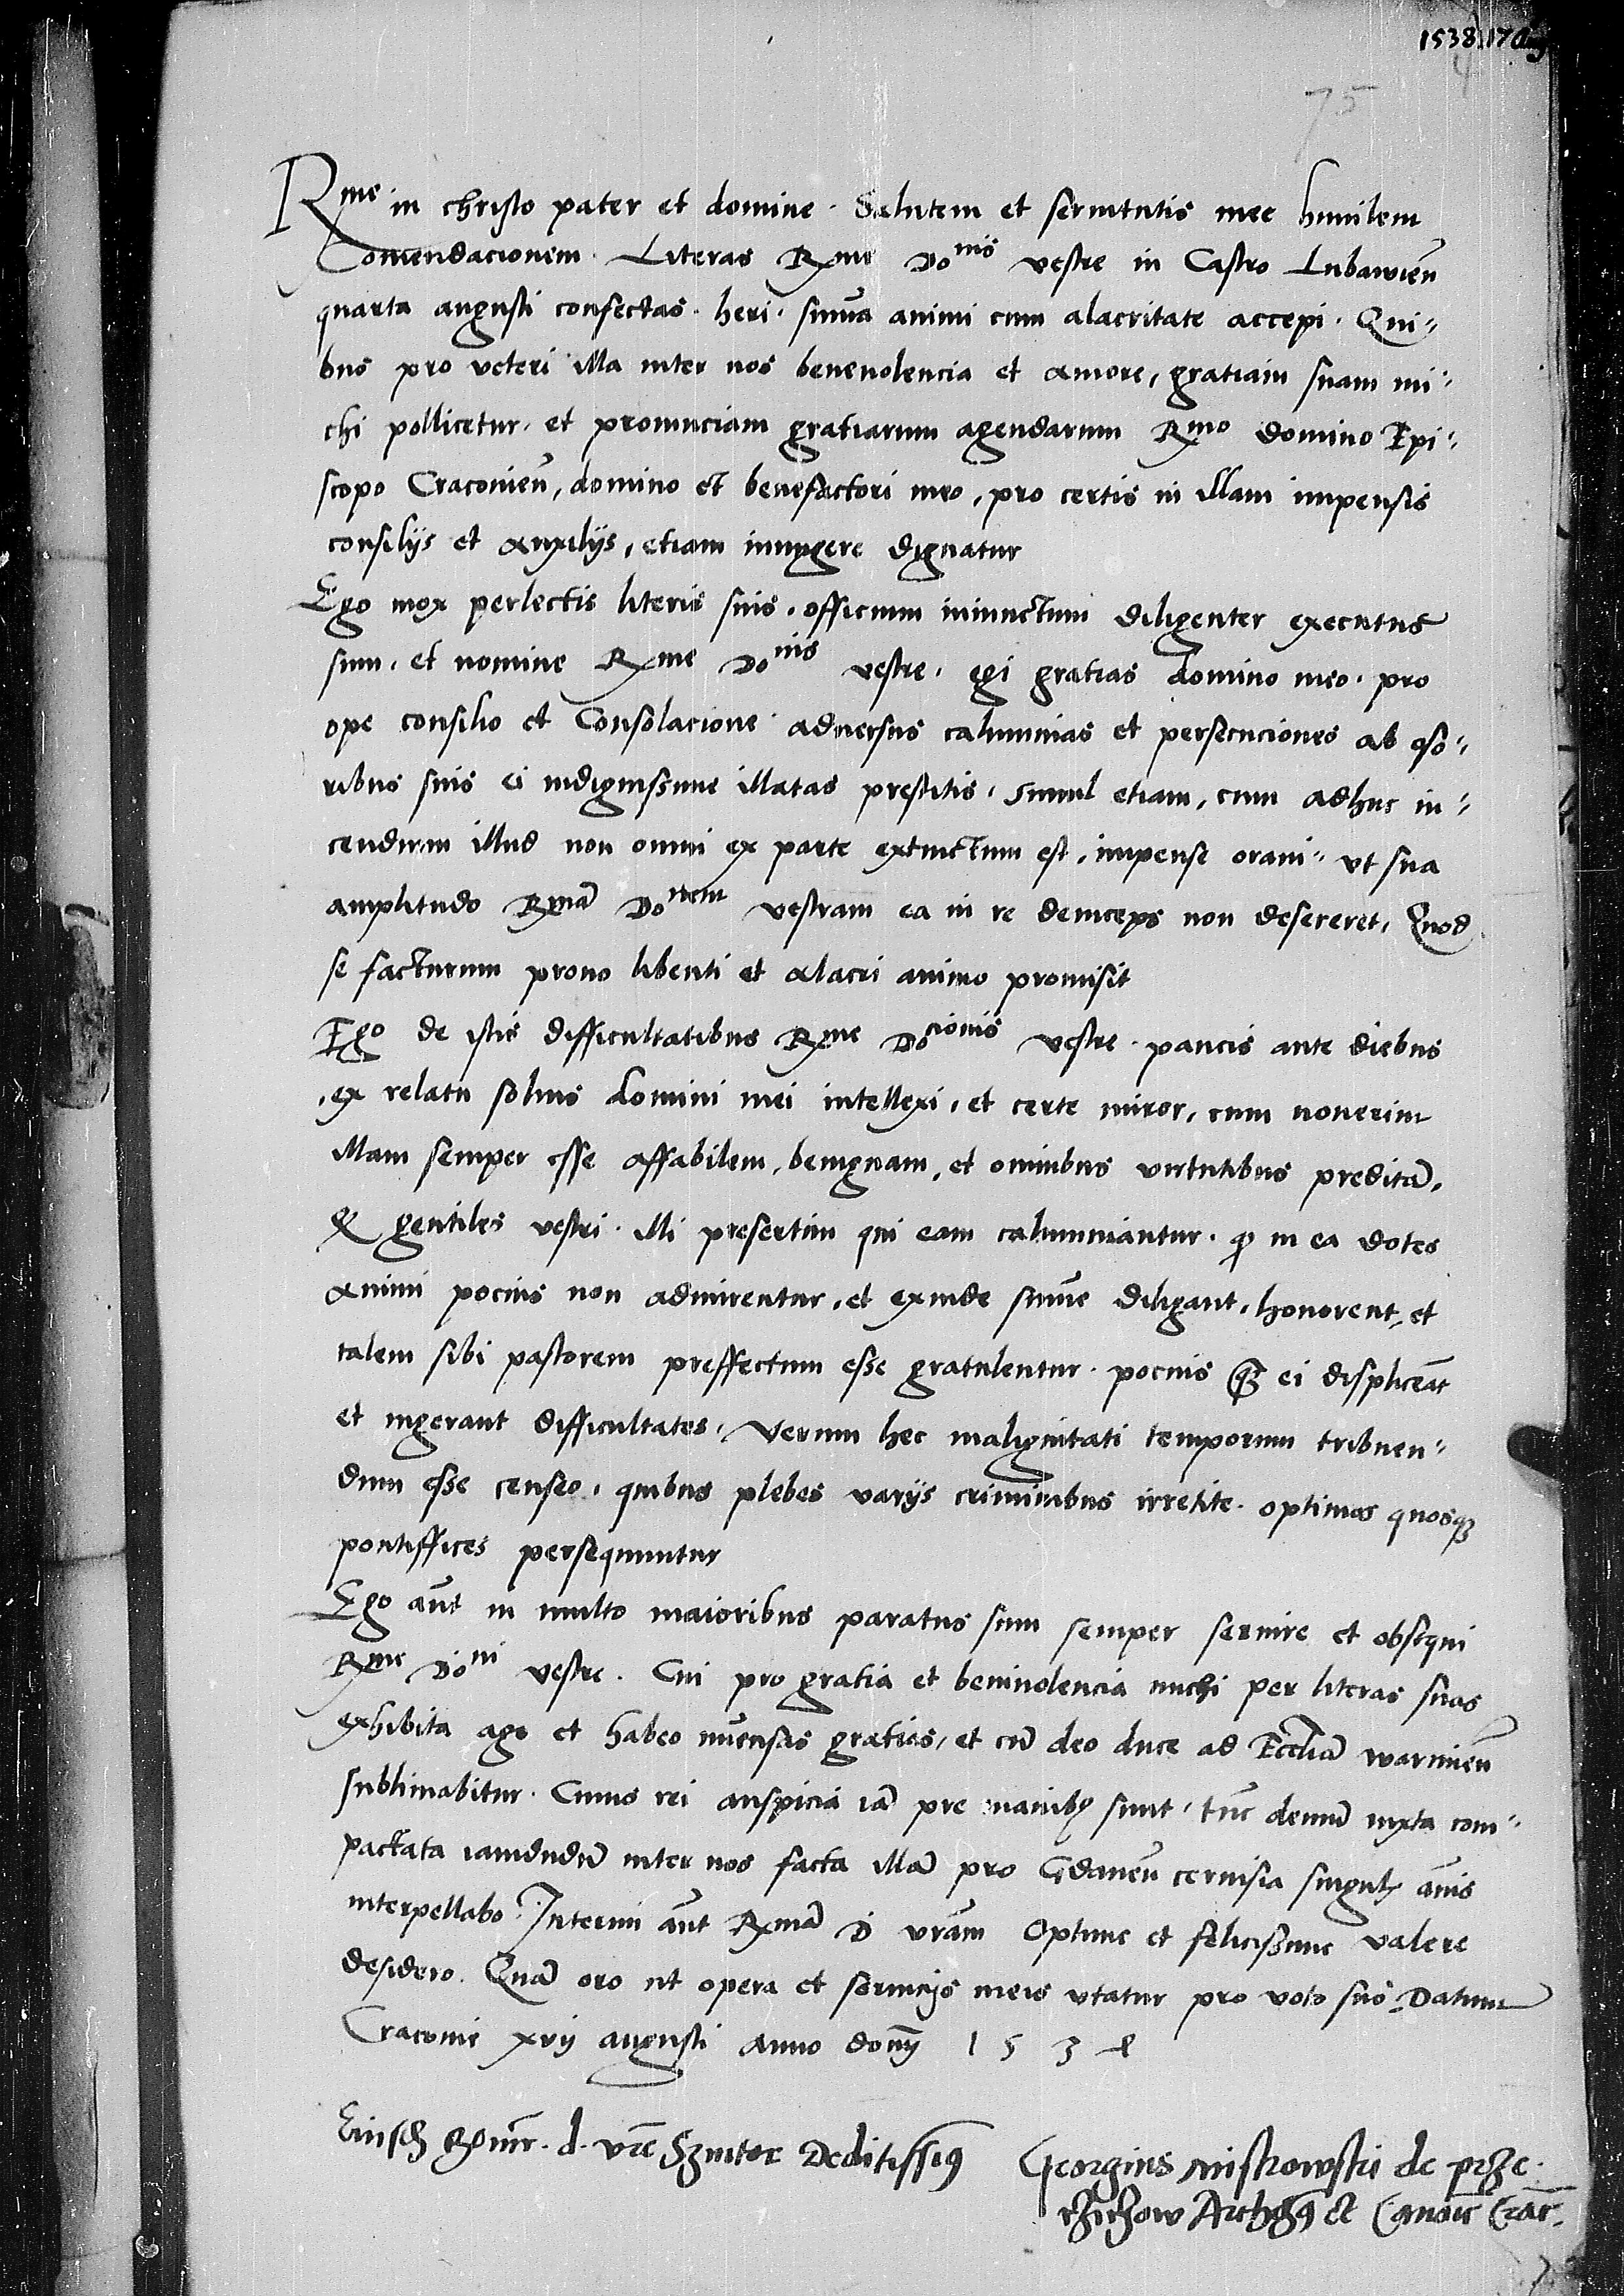 1538.17 Aug
75
Rme in christo pater et domine. Salutem et seruitutis mee humilem
Comendacionem. Literas Rme Donis vestre in Castro Lubawien̄
quarta augusti confectas. heri. sum̄a animi cum alacritate accepi. Qui„
bus pro veteri illa inter nos beneuolencia et amore, gratiam suam mi„
chi pollicetur. et prouinciam gratiarum agendarum Rmo domino Epi„
scopo Cracouien̄, domino et benefactori meo, pro certis in illam impensis
consilijs et auxilijs, etiam iniungere dignatur
Ego mox perlectis literis suis. officium iniunctum diligenter executus
sum. et nomine Rme Donis vestre. egi gratias domino meo. pro
ope consilio et Consolacione aduersus calumnias et persecuciones ab oso„
ribus suis ei indignissime illatas prestitis. simul etiam, cum adhuc in„
cendium illud non omni ex parte extinctum est. impense oraui. vt sua
amplitudo Rmā Donem vestram ea in re deinceps non desereret. Quod
se facturum prono libenti et alacri animo promisit
Ego de istis difficultatibus Rme Docionis vestre. paucis ante diebus
ex relatu solius domini mei intellexi. et certe miror, cum nouerim
illam semper esse affabilem, benignam, et omnibus virtutibus preditā.
gentiles vestri. illi presertim qui eam calumniantur. in ea dotes
animi pocius non admirentur. et exinde sum̄e diligant. honorent, et
talem sibi pastorem preffectum esse gratulentur. pocius qz ei displiceāt
et ingerant difficultates. Verum hec malignitati temporum tribuen„
dum esse censeo. quibus plebes varijs criminibus irretite. optimos quosqz
pontiffices persequuntur
Ego aūt in multo maioribus paratus sum semper seruire et obsequi
Rme Doni vestre. Cui pro gratia et beniuolencia michi per literas suas
exhibita ago et habeo im̄ensas gratias, et cū deo duce ad Eccliā warmien̄
sublimabitur. Cuius rei auspicia iā pre manibq sunt. tūc demū iuxta com„
pactata iamdudū inter nos facta illā pro Gdanen̄ ceruisia singulis an̄is
interpellabo. Interim aūt Rmā D vrām Optime et felicissime valere
desidero. Quā oro ut opera et seruicijs meis vtatur pro voto suo. Datum
Cracouie xvij augusti anno domj 1538
Eiusdem Rme. d. vre Seruitor Deditissimq
Georgius mischowski de prze.
czichow Archqs et Canoic Crac.